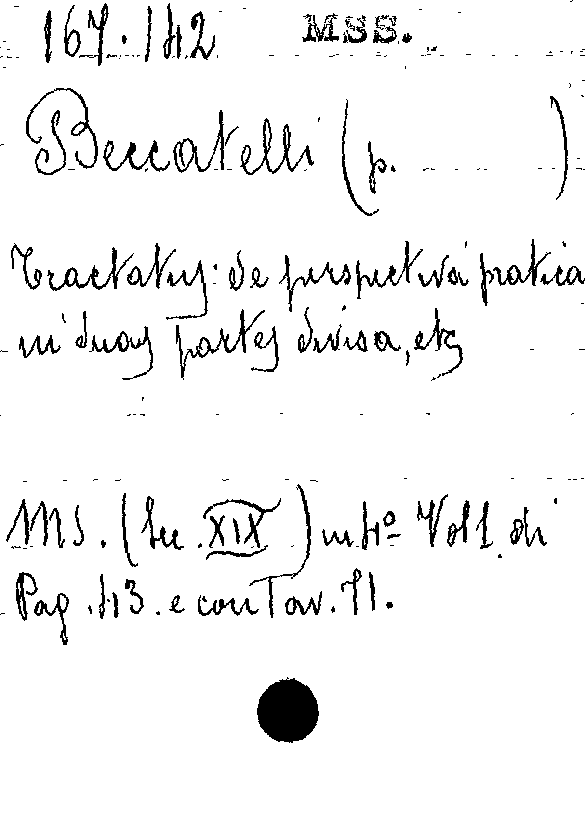 167.142 MSS.
Beccatelli (p. )
Tractatus: de perspectiva pratica
in duas partes divisa, etc
MS. (Sec. XIX) in 4º Vol 1. di
Pag. 43. e con Tav. 71.